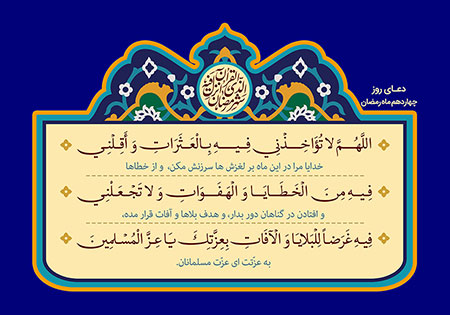 شهر رمضان الذی انزل فیه القرآن
دعـای روز
چهاردهم ماه رمضان
اللَّهُمَّ لا تُؤَاخِذْنِي فِيهِ بِالْعَثَرَاتِ وَ أَقِلْنِي
خدایا مرا در این ماه بر لغزش ها سرزنش مکن، و از خطاها
فِيهِ مِنَ الْخَطَايَا وَ الْهَفَوَاتِ وَ لا تَجْعَلْنِي
و افتادن در گناهان دور بدار، و هدف بلاها و آفات قرار مده،
فِيهِ غَرَضاً لِلْبَلايَا وَ الْآفَاتِ بِعِزَّتِكَ يَا عِزَّ الْمُسْلِمِينَ
به عزّتت ای عزّت مسلمانان.